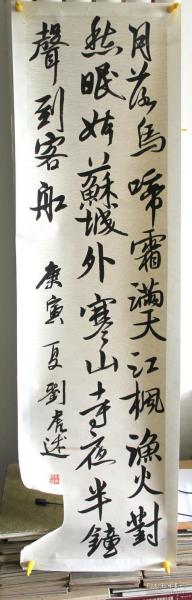 月落烏啼霜滿天江楓漁火對
愁眠姑蘇城外寒山寺夜半鐘
聲到客船
庚寅夏劉彥述